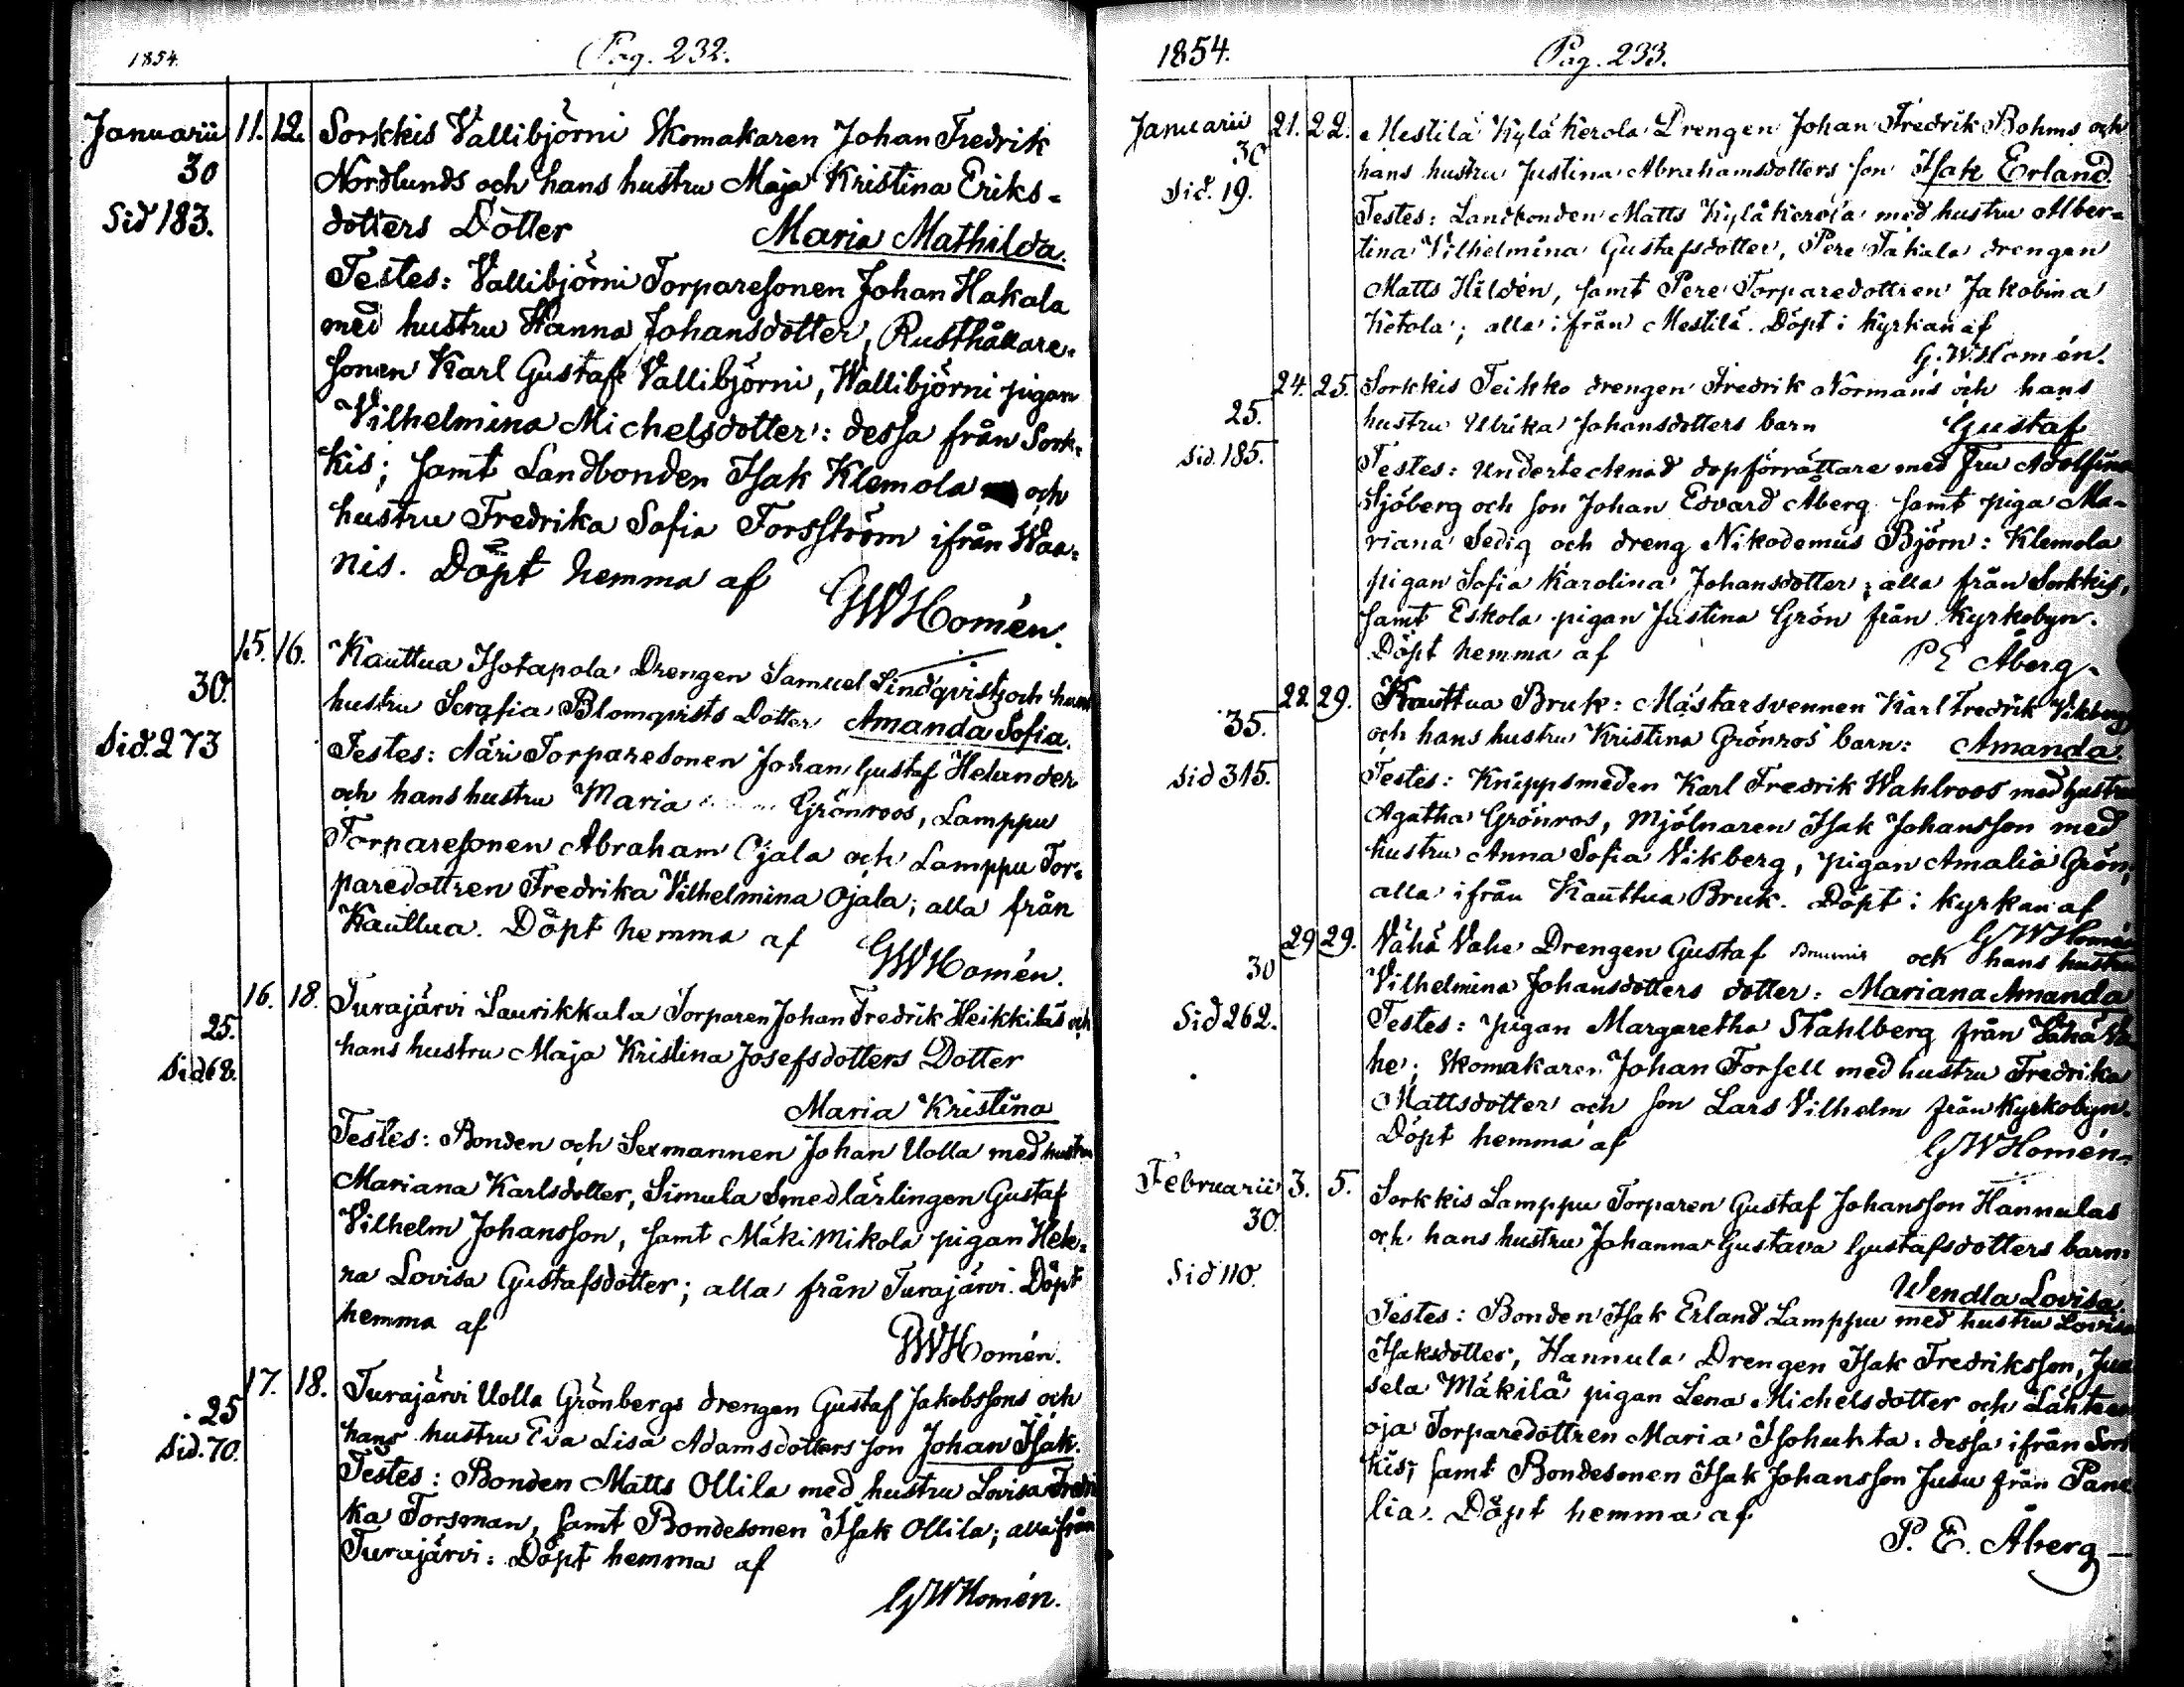 1854.
Pag. 232.
Januarii 11. 12. Sorkkis Vallibjörni Skomakaren Johan Fredrik
30 Nordlunds och hans hustru Maja Kristina Eriks-
Sid 183. dotters Dotter Maria Mathilda.
Testes: Vallibjörni Torparesonen Johan Hakala
med hustru Hanna Johansdotter, Rusthållare-
sonen Karl Gustaf Vallibjörni, Wallibjörni pigan
Vilhelmina Michelsdotter: dessa från Sork-
kis; samt Landbonden Isak Klemola och
hustru Fredrika Sofia Forsström ifrån Waa-
nis. Döpt hemma af
GWHomén.
15. 16. Kauttua Isotapola Drengen Samuel Lindqvists och hans
30. hustru Serafia Blomqvists Dotter Amanda Sofia.
Sid. 273 Testes: Näri Torparesonen Johan Gustaf Helander
och hans hustru Maria Grönroos, Lamppu
Torparesonen Abraham Ojala och Lamppu Tor-
paredottren Fredrika Vilhelmina Ojala; alla från
Kauttua. Döpt hemma af
GWHomén.
16. 18. Turajärvi Laurikkala Torparen Johan Fredrik Heikkiläs och
25. hans hustru Maja Kristina Josefsdotters Dotter
Sid 68. Maria Kristina
Testes: Bonden och Sexmannen Johan Uolla med hustru
Mariana Karlsdotter, Simula Smedlärlingen Gustaf
Vilhelm Johansson, samt Mäki Mikola pigan Hele-
na Lovisa Gustafsdotter; alla från Turajärvi. Döpt
hemma af
GWHomén.
17. 18. Turajärvi Uolla Grönbergs drengen Gustaf Jakobssons och
25 hans hustru Eva Lisa Adamsdotters son Johan Isak.
Sid. 70. Testes: Bonden Matts Ollila med hustru Lovisa Fredri
ka Forsman, samt Bondesonen Isak Ollila; alla från
Turajärvi: Döpt hemma af
GWHomén.
1854.
Pag. 233.
Januarii 21. 22. Mestilä Kyläkerola Drengen Johan Fredrik Bohms och
30 hans hustru Justina Abrahamsdotters son Isak Erland.
Sid. 19. Testes: Landbonden Matts Kyläkerola med hustru Alber-
tina Vilhelmina Gustafsdotter, Pere Takala drengen
Matts Hildén, samt Pere Torparedottren Jakobina
Ketola; alla ifrån Mestilä. Döpt i Kyrkan af
G.W.Homén.
24. 25. Sorkkis Teikko drengen Fredrik Normans och hans
25. hustru Ulrika Johansdotters barn Gustaf
Sid. 185. Testes: Undertecknad dopförrättare med Fru Adolfina
Sjöberg och son Johan Edvard Åberg samt piga Ma-
riana Sedig och dreng Nikodemus Björn: Klemola
pigan Sofia Karolina Johansdotter; alla från Sorkkis,
samt Eskola pigan Justina Grön från Kyrkobyn.
Döpt hemma af
P E Åberg
28. 29. Kauttua Bruk: Mästarsvennen Karl Fredrik Vikbergs
35. och hans hustru Kristina Grönros' barn: Amanda.
Sid 315. Testes: Knippsmeden Karl Fredrik Wahlroos med hustru
Agatha Grönros, Mjölnaren Isak Johansson med
hustru Anna Sofia Vikberg, pigan Amalia Grön,
alla ifrån Kauttua Bruk. Döpt i kyrkan af
GWHomén
29 29. Vähä Vahe Drengen Gustaf och hans hustru
30 Vilhelmina Johansdotters dotter: Mariana Amanda
Sid 262. Testes: pigan Margaretha Stahlberg från Vähä Va
he; Skomakaren Johan Forsell med hustru Fredrika
Mattsdotter och son Lars Vilhelm från Kyrkobyn.
Döpt hemma af
GWHomén.
Februarii 3. 5. Sorkkis Lamppu Torparen Gustaf Johansson Hannulas
30. och hans hustru Johanna Gustava Gustafsdotters barn:
Sid 110. Wendla Lovisa.
Testes: Bonden Isak Erland Lamppu med hustru Lovisa
Isaksdotter, Hannula Drengen Isak Fredriksson,
sela Mäkilä pigan Lena Michelsdotter och
oja Torparedottren Maria Isohuhta: dessa ifrån Sork
kis; samt Bondesonen Isak Johansson Jusu från Pane
lia. Döpt hemma af
P. E. Åberg